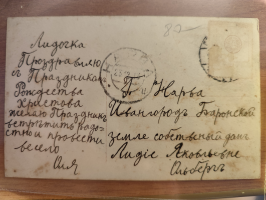 82-
Лидочка
Поздравляю
съ Праздникомъ
Рождества
Христова
желаю Праздникъ
встрѣтить радо-
стно и провести
весело
Оля
Г. Нарва
Ивангородъ Баронской
землѣ собственый домъ
Лидіе Яковльевне
Ольбергъ